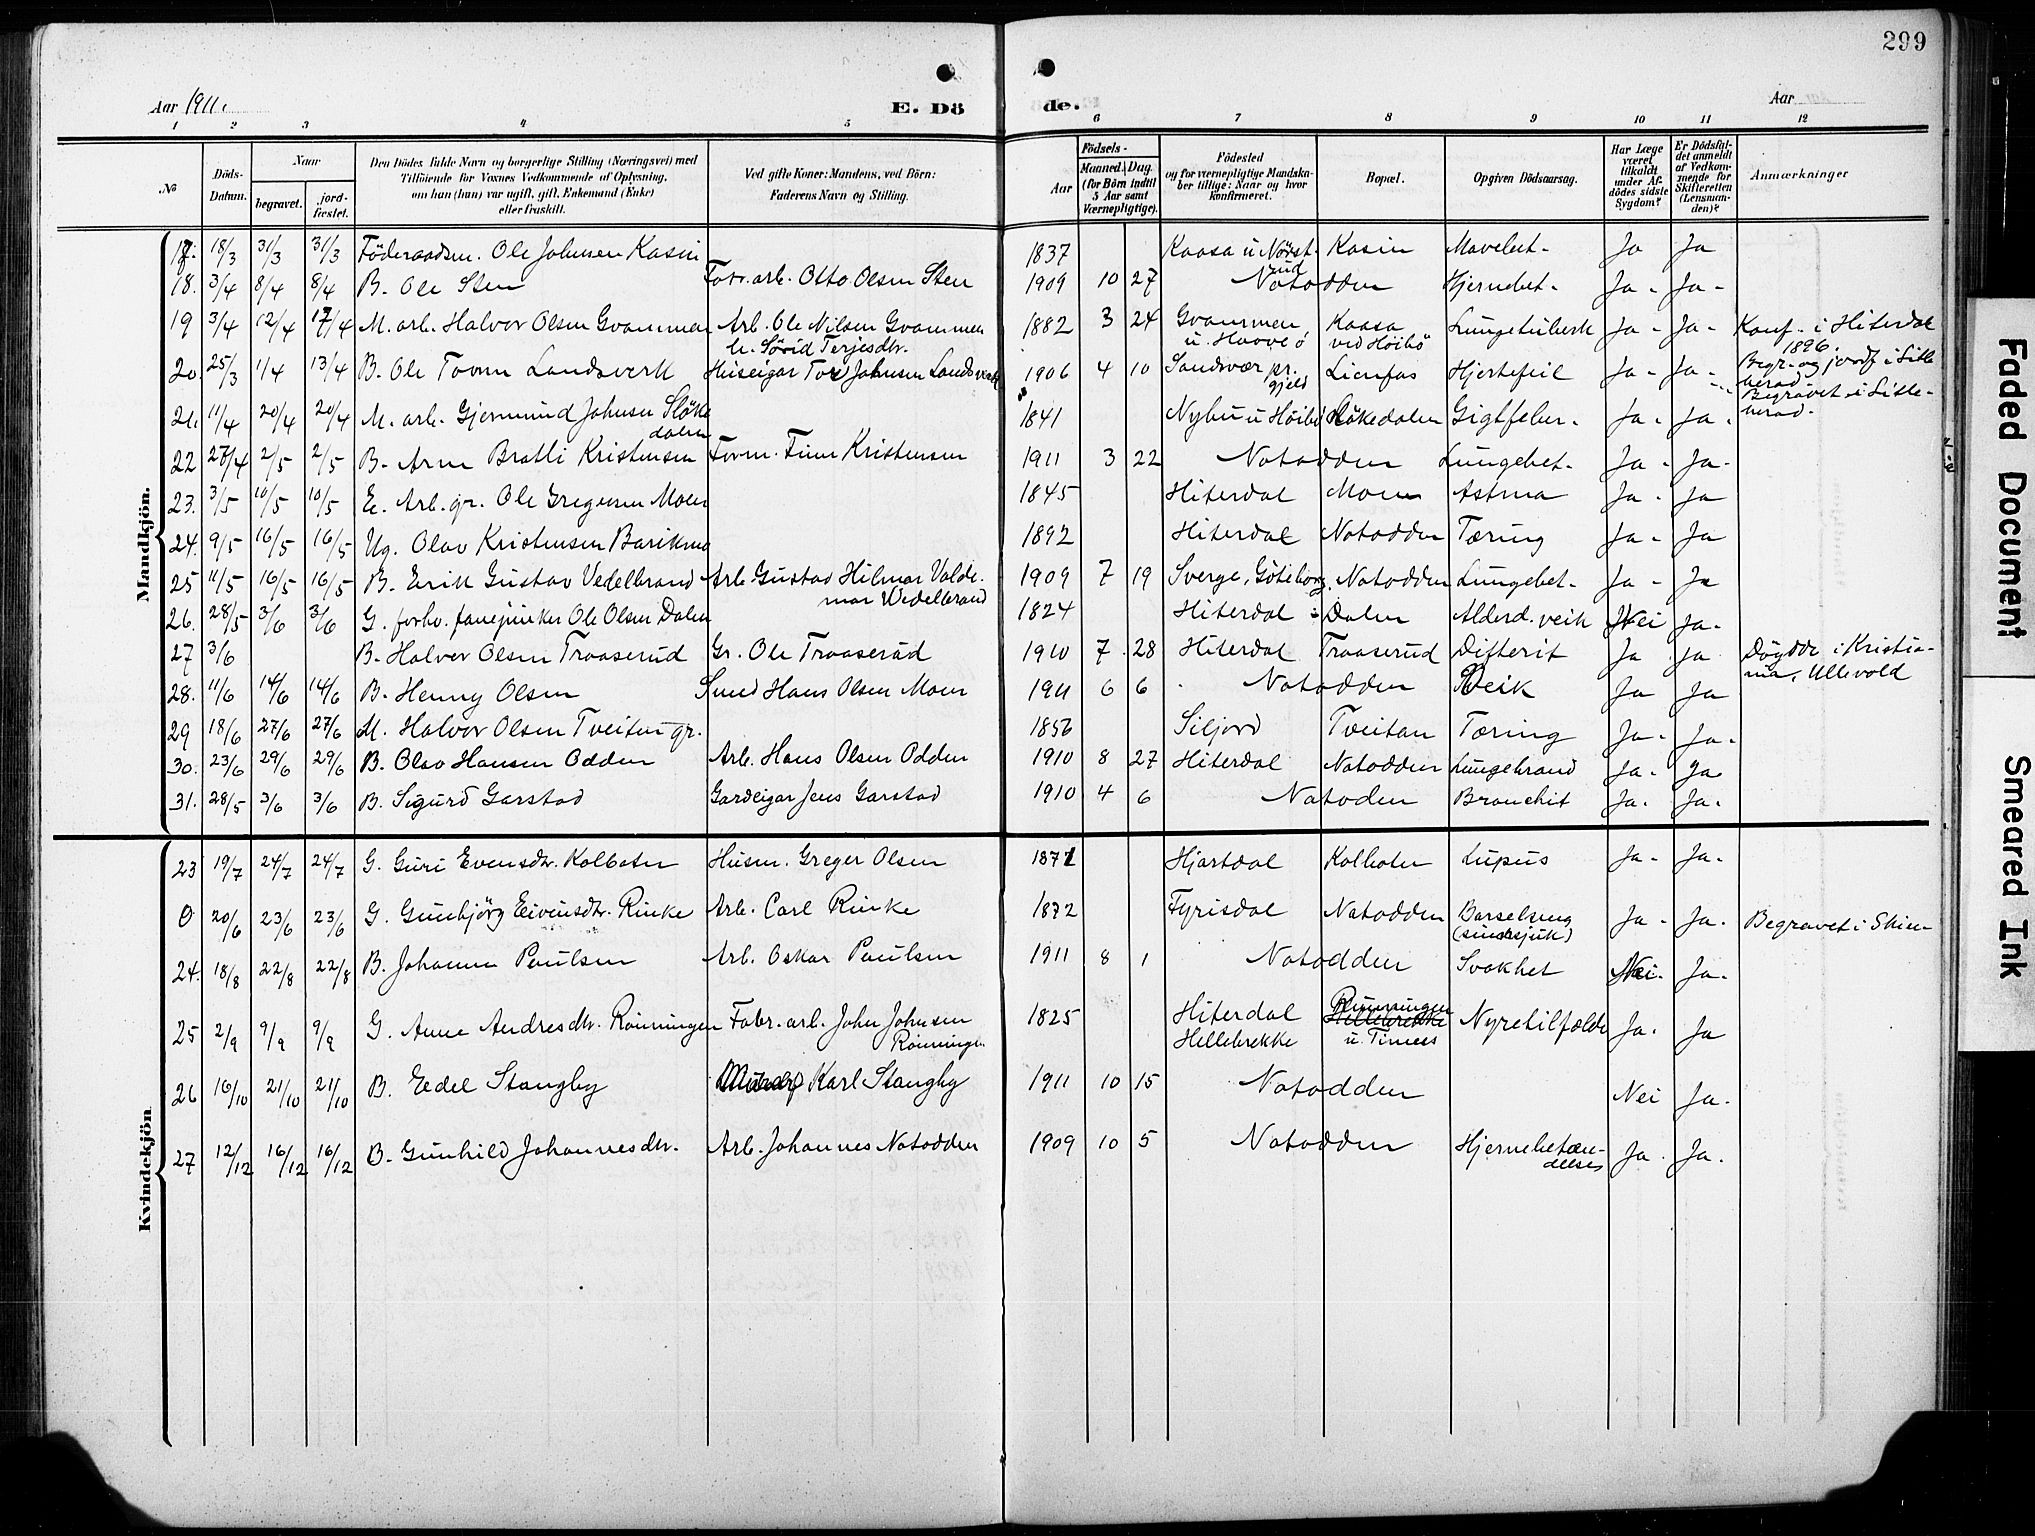 299
Aar 1911.
E. Dö
de.
Aar
1 2 3 4 5 6 7 8 9 10 11 12
No
Döds-Datum.
Naar
begravet.
jord-fæstet.
Den Dödes fulde Navn og borgerlige Stilling (Næringsvei) med Tilföiende for Voxnes Vedkommende af Oplysning, om han (hun) var ugift, gift, Enkemand (Enke) eller fraskilt.
Ved gifte Koner: Mandens, ved Börn: Faderens Navn og Stilling.
Födsels-
Aar
Maaned. Dag.
(for Börn indtil 5 Aar samt Værnepligtige).
Födested og for værnepligtige Mandskaber tillige: Naar og hvor konfirmeret.
Bopæl.
Opgiven Dödsaarsag.
Har Læge været tilkaldt under Afdödes sidste Sygdom?
Er Dödsfaldet anmeldt af Vedkommende for Skifteretten (Lensmanden)?
Anmærkninger
Mandkjön.
17. 18/3 31/3 31/3 Föderaadsm. Ole Johnsen Kasin 1837 Kaasa u Nörstrud Kasin Mavebet- Ja Ja
18. 3/4 8/4 8/4 B. Ole Sten Fabr. arb. Otto Olsen Sten 1909 10 27 Notodden Hjernebet- Ja- Ja-
19 3/4 12/4 17/4 M. arb. Halvor Olsen Gvammen Arb. Ole Nilsen Gvammen h. Sörid Terjesdtr. 1882 3 24 Gvammen, u. Haave ö Kaasa ved Höibö Lungetuberk Ja- Ja- Konf- i Hiterdal 1896.
20. 25/3 1/4 13/4 B. Ole Tovsen Landsverk Huseigar Tov Johnsen Landsverk 1906 4 10 Sandsvær pr.gjeld Lienfos Hjertefeil Ja- Ja- Begr. og jordf i Litleherad-
21. 11/4 20/4 20/4 M. arb. Gjermund Johnsen Slökedalen 1841 Nybu u Höibö Slökedalen Gigtfeber. Ja- Ja. Begravet i Litleherad.
22 27/4 2/5 2/5 B. Arne Bratli Kristensen Form. Finn Kristensen 1911 3 22 Notodden Lungebet- Ja- Ja-
23. 3/5 10/5 10/5 E. Arb. gr. Ole Gregersen Moen 1845 Hiterdal Moen Astma Ja- Ja
24. 9/5 16/5 16/5 Ug. Olav Kristensen Barikmo 1892 Hiterdal Notodden Tæring Ja- Ja
25 11/5 16/5 16/5 B. Erik Gustav Vedelbrand Arb. Gustav Hilmar Valdemar Wedelbrand 1909 7 19 Sverge, Göteborg. Notodden Lungebet- Ja- Ja
26. 28/5 3/6 3/6 G. forhv. fanejunker Ole Olsen Dalen 1824 Hiterdal Dalen Alderd. veik Nei Ja-
27 3/6 B. Halvor Olsen Traaserud Gr. Ole Traaserud 1910 7 28 Hiterdal Traaserud Difterit Ja Ja Döydde i Kristiania, Ullevold
28. 11/6 14/6 14/6 B. Henny Olsen Smed Hans Olsen Moen 1911 6 6 Notodden Veik Ja Ja
29 18/6 27/6 27/6 M. Halvor Olsen Tveiten gr. 1856 Siljord Tveitan Tæring Ja- Ja-
30. 23/6 29/6 29/6 B. Olav Hansen Odden Arb. Hans Olsen Odden 1910 8 27 Hiterdal Notodden Lungebrand Ja- Ja
31. 28/5 3/6 3/6 B. Sigurd Garstad Gardeigar Jens Garstad 1910 4 6 Notoden Bronchit Ja. Ja.
Kvindekjön.
23 19/7 24/7 24/7 G. Guri Evensdtr. Kolboten Husm. Greger Olsen 1871 Hjartdal Kolboten Lupus Ja- Ja.
0 20/6 23/6 23/6 G. Gunbjörg Eivinsdtr. Rinke Arb. Carl Rinke 1872 Fyrisdal Notodden Barselseng (sindssjuk) Ja- Ja. Begravet i Skien
24. 18/8 22/8 22/8 B. Johanne Paulsen Arb. Oskar Paulsen 1911 8 1 Notodden Svakhet Nei. Ja.
25 2/9 9/9 9/9 G. Anne Andresdtr. Rönningen Fabr. arb. John Johnsen Rönningen 1825 Hiterdal Hellebrekke Rönningen Hellebrekke u. Tinnes Nyretilfælde Ja. Ja
26 16/10 21/10 21/10 B. Edel Stangby Karl Stangby 1911 10 15 Notodden Nei Ja.
27 12/12 16/12 16/12 B. Gunhild Johannesdtr. Arb. Johannes Notodden 1909 10 5 Notodden Hjernebetændelse Ja. Ja.
Faded Document
Smeared Ink